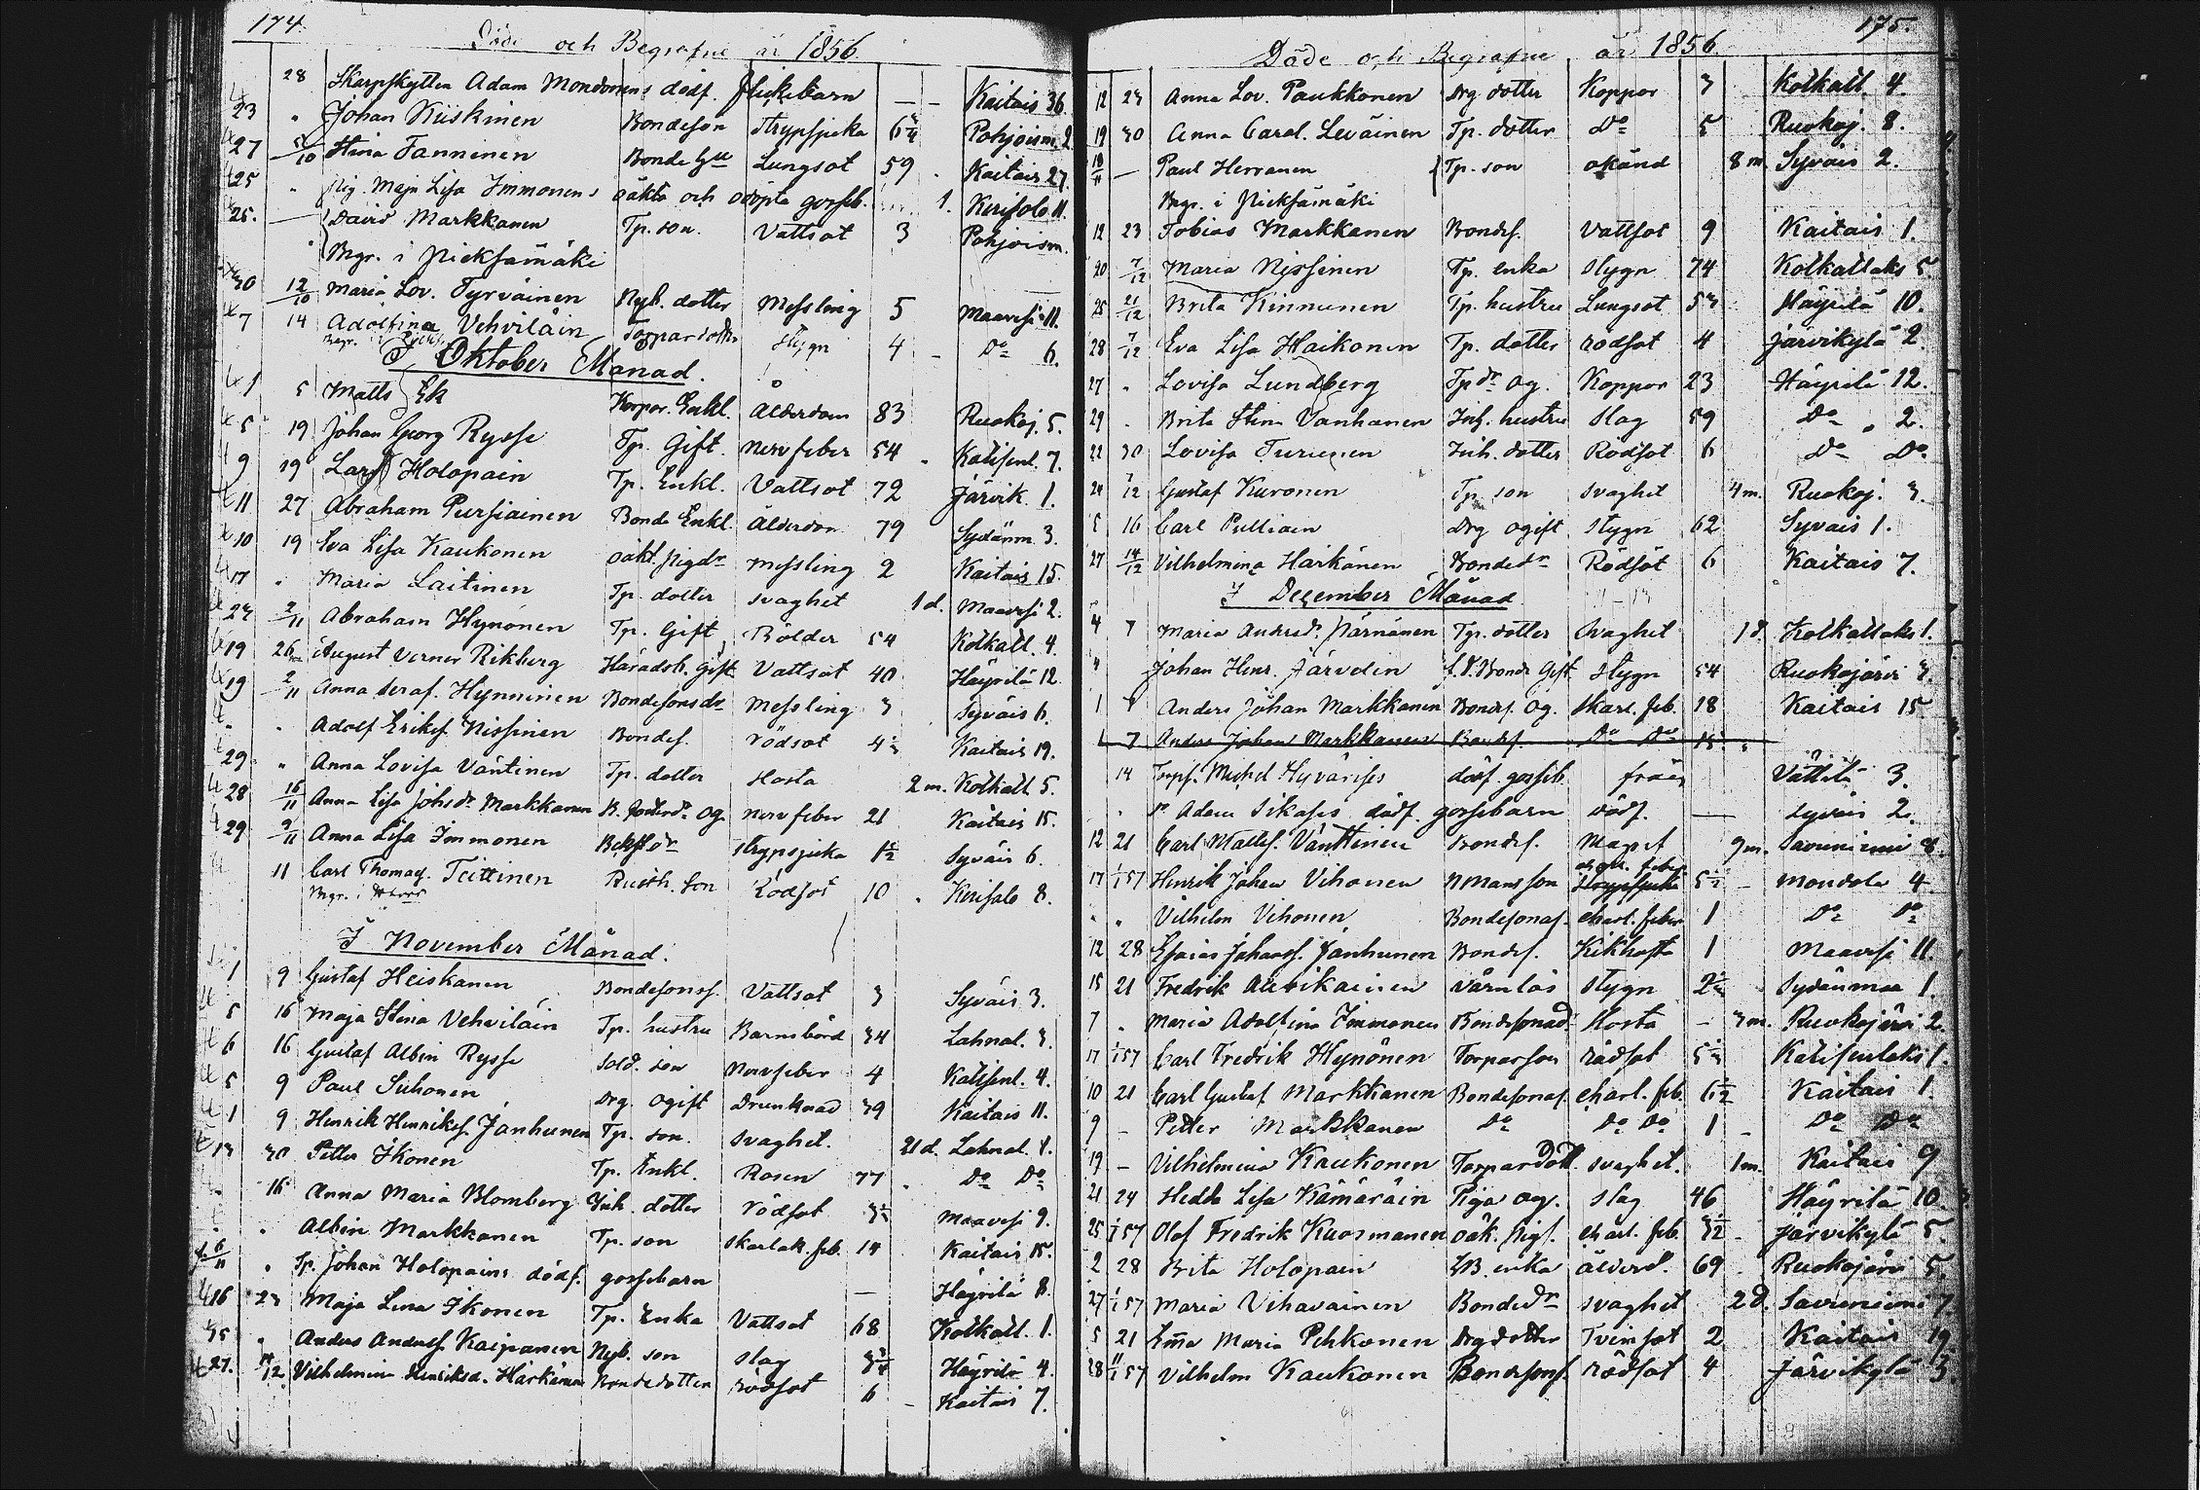 174.
Döde och Begrafne år 1856.
28 Skarpskytten Adam Mondonens dödf. flickebarn — — Kaitais 36.
23 " Johan Kiiskinen Bondeson Strypsjuka 6 3/4 Pohjoism. 2
27 5/10 Stina Tanninen Bonde Lungsot 59 . Kaitais 27.
25 " Pig. Maja Lisa Immonens oäkta och odöpta gosseb. 1. Kerisalo 11.
25. — David Markkanen Tp. son. Vattsot 3 Pohjoism.
" Begr. i Pieksämäki
30 12/10 Maria Lov. Tyrväinen Nyb. dotter Messling 5 Maavesi 11.
7 14 Adolfina Vehviläin Torpardotter Stygn 4 — Do 6.
I Oktober Månad.
1 5 Matts Ek Korpor. Enkl. Ålderdom 83 Ruokoj. 5.
5 19 Johan Georg Rysse Tp. Gift. Nervfeber 54 . Katisenl. 7.
9 19 Lars Holopain Tp. Enkl. Vattsot 72 Järvik. 1.
11 27 Abraham Pursiainen Bonde Enkl. Ålderdom 79 Sydänm. 3.
10 19 Eva Lisa Kaukonen oäkt. Pigdr Messling 2 Kaitais 15.
17 " Maria Laitinen Tp. dotter svaghet 1 d. Maavesi 2.
27 2/11 Abraham Hynönen Tp. Gift Bölder 54 Kolkatl. 4.
19 26 August Verner Rikberg Häradsb. Gift. Vattsot 40 Häyrilä 12.
19 2/11 Anna Seraf. Hynninen Bondesonsdr Messling 3 Syväis 6.
" " Adolf Eriksf. Nissinen Bondes. rödsot 4 1/2 Kaitais 19.
29 " Anna Lovisa Väntinen Tp. dotter Hosta 2 m. Kolkatl. 5.
28 16/11 Anna Lisa Johsdr Markkanen B. Og. Nervfeber 21 Kaitais 15.
29 9/11 Anna Lisa Immonen strypsjuka 1 1/2 Syväis 6.
11 Carl Thomas. Teittinen Rusth. son Rödsot 10 . Kerisalo 8.
Begr. i
I November Månad.
1 9 Gustaf Heiskanen Bondesonss. Vattsot 3 Syväis 3.
5 16 Maja Stina Vehviläin Tp. hustru Barnsbörd 34 Lahnal. 3.
6 16 Gustaf Albin Rysse Sold. son Nervfeber 4 Katisenl. 4.
5 9 Paul Suhonen Drg. Ogift Drunknad 39 Kaitais 11.
1 9 Henrik Henriksf. Janhunen Tp. son. Svaghet. 21 d. Lahnal. 1.
13 30 Petter Ikonen Tp. Enkl. Rosen 77 . Do Do
" 16 Anna Maria Blomberg Inh. dotter rödsot 3 1/2 Maavesi 9.
" " Albin Markkanen Tp. son skarlak. feb. 14 Kaitais 15.
6/11 " Tp. Johan Holopains dödf. gossebarn — Häyrilä 8.
16 23 Maja Lena Ikonen Tp. Enka Vattsot 68 Kolkatl. 1.
" Anders Andersf. Kaipanen Nyb. son slag 3 3/4 Häyrilä 4.
27. 14/12 Vilhelmina Henriksd. Härkänen Bondedotter rödsot 6 — Kaitais 7.
175.
Döde och Begrafne år 1856
12 23 Anna Lov. Paukkonen Drg dotter Koppor 3 Kolkatl. 4.
19 30 Anna Carol. Leväinen Tp. dotter Do 5 Ruokoj. 8.
18/11 — Paul Herranen Tp. son okänd 8 m. Syväis 2.
Begr. i Pieksämäki
12 23 Tobias Markkanen Bondes. Vattsot 9 Kaitais 1.
20 7/12 Maria Nissinen Tp. enka Stygn 74 Kolkatlaks 5.
25 21/12 Brita Kinnunen Tp. hustru Lungsot 53 Häyrilä 10.
28 7/12 Eva Lisa Haikonen Tp. dotter rödsot 4 Järvikylä 2.
27 " Lovisa Lundberg Tp dr og. Koppor 23 Häyrilä 12.
29 . Brita Stina Vanhanen Inh. hustru slag 59 Do " 2.
22 30 Lovisa Turunen Inh. dotter Rödsot 6 Do Do
24 7/12 Gustaf Kuronen Tp. son svaghet 4 m. Ruokoj. 3.
5 16 Carl Pulliain Drg ogift stygn 62 Syväis 1.
27 14/12 Vilhelmina Härkänen Bondedr Rödsot 6 Kaitais 7.
I December Månad
4 7 Maria Andersdr Pärnänen Tp. dotter Svaghet 1 d. Kolkatlaks 1.
" Johan Henr. Järvelin Bonde Gift stygn 54 Ruokojärvi 3.
1 Anders Johan Markkanen Bondes. Og. skarl. feb. 18 Kaitais 15
1 7 Anders Johan Markkanen Bondes. Do Do 18 "
14 Torpf. Michel Hyvärises dödf. gosseb. Vättilä 3.
. Adam Sikases dödf. gossebarn dödf. — Syväis 2.
12 21 Carl Mattsf. Vänttinen Bondes. Magref 9 m. Savuniemi 8.
17 1/1 57 Henrik Johan Vihonen N Mans son Strypsjuka 5 1/2 — Mondola 4
" " Vilhelm Vihonen Bondesonss. charl. feber 1 Do Do
12 28 Esaias Johansf. Janhunen Bondes. Kikhosta 1 Maavesi 11.
15 21 Fredrik Auvikainen värnlös stygn 2 1/2 Sydänmaa 1.
7 " Maria Adolfina Immonen Bondesonsd. Hosta — 3 m. Ruokojärvi 2.
17 1/1 57 Carl Fredrik Hynönen Torparson rödsot 5 1/2 Katisenlaks 1.
10 21 Carl Gustaf Markkanen Bondesonss. charl. feb. 6 1/2 Kaitais 1.
9 — Petter Markkanen Do Do Do 1 — Do Do
19 — Vilhelmina Kaukonen Torpardott. svaghet. 1 m. Kaitais 9
21 24 Hedda Lisa Kämäräin Piga og. slag 46 Häyrilä 10.
25 1/1 57 Olof Fredrik Kuosmanen oäk. Pigs. charl. feb. 3 1/2 — Järvikylä 5.
2 28 Brita Holopain enka ålderd. 69 Ruokojärvi 5.
27 1/1 57 Maria Vihavainen Bondedr svaghet 2 d. Savuniemi 7.
5 21 Em̄a Maria Pehkonen Drgdotter Tvinsot 2 Kaitais 19.
28 11/1 57 Vilhelm Kaukonen Bondesons. rödsot 4 Järvikylä 3.